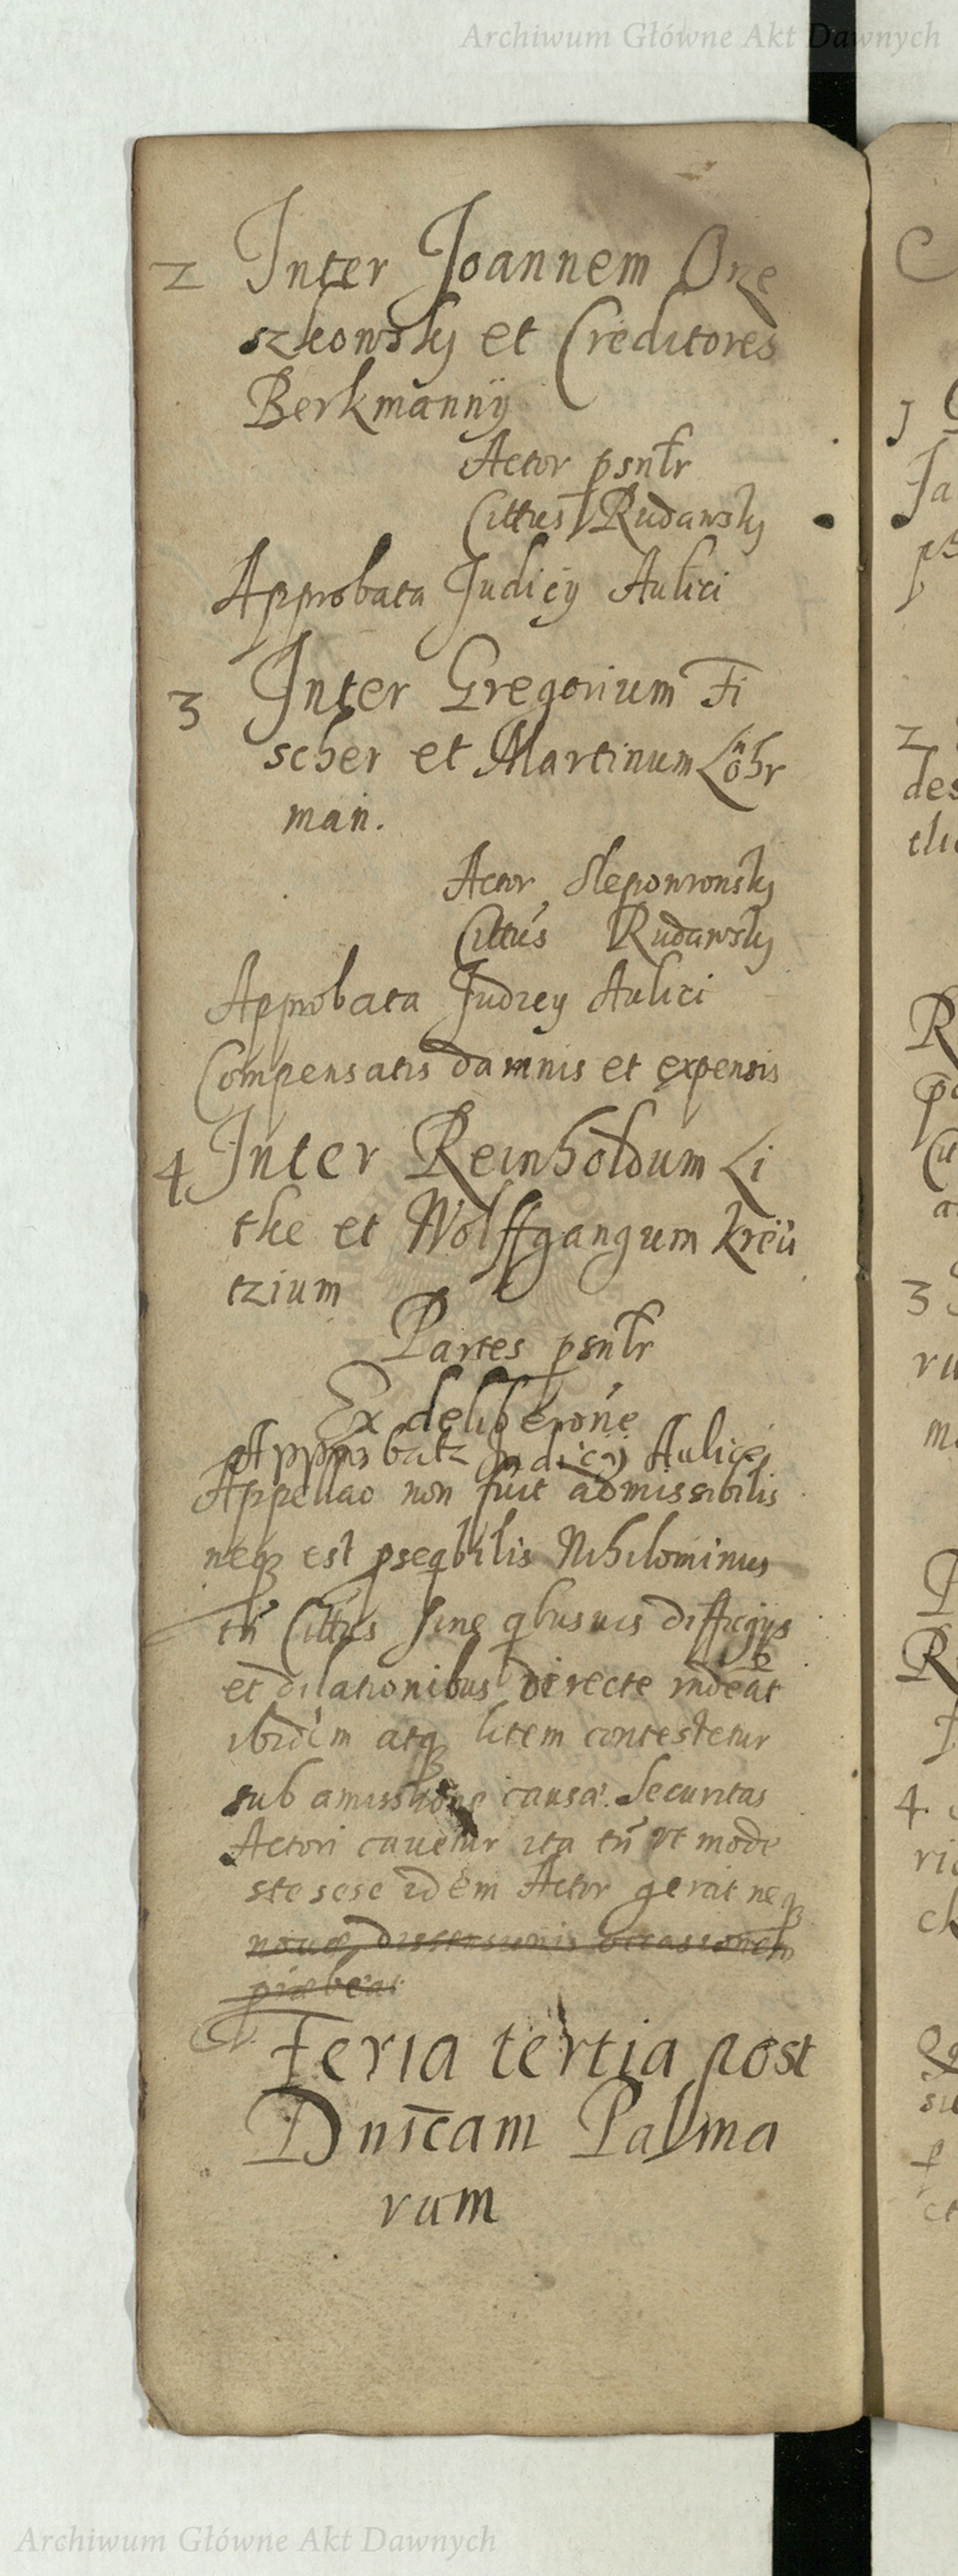 Archiwum Główne Akt Dawnych
2 Inter Joannem One
szkowsky et Creditores
Berkmannÿ
Actor psnlr
Cittus Rudawsky
Approbata Judicÿ Aulici
3 Inter Gregorium Fi
scher et Martinum Löhr
man.
Actor Sleponronsky
Cittus Rudawsky
Approbata Judicy Aulici
Compensatis damnis et expensis
4 Inter Reinholdum Li
tke et Wolffgangum Kreü
tzium
Partes psnlr
Ex deliberone
Approbata Judicij Aulici
Appellao non fuit admissibilis
neq est pseqbilis Nihilominus
tn Cittus sine qbusuis diffugijs
et dilationibus directe
ibidem atq litem contestetur
sub amissione causæ. Securitas
Actori cavetur ita tn vt mode
ste sese idem Actor gerat neq
nouæ dissensionis occasionem
præbeat
Feria tertia post
Dnicam Palma
rum
Archiwum Główne Akt Dawnych